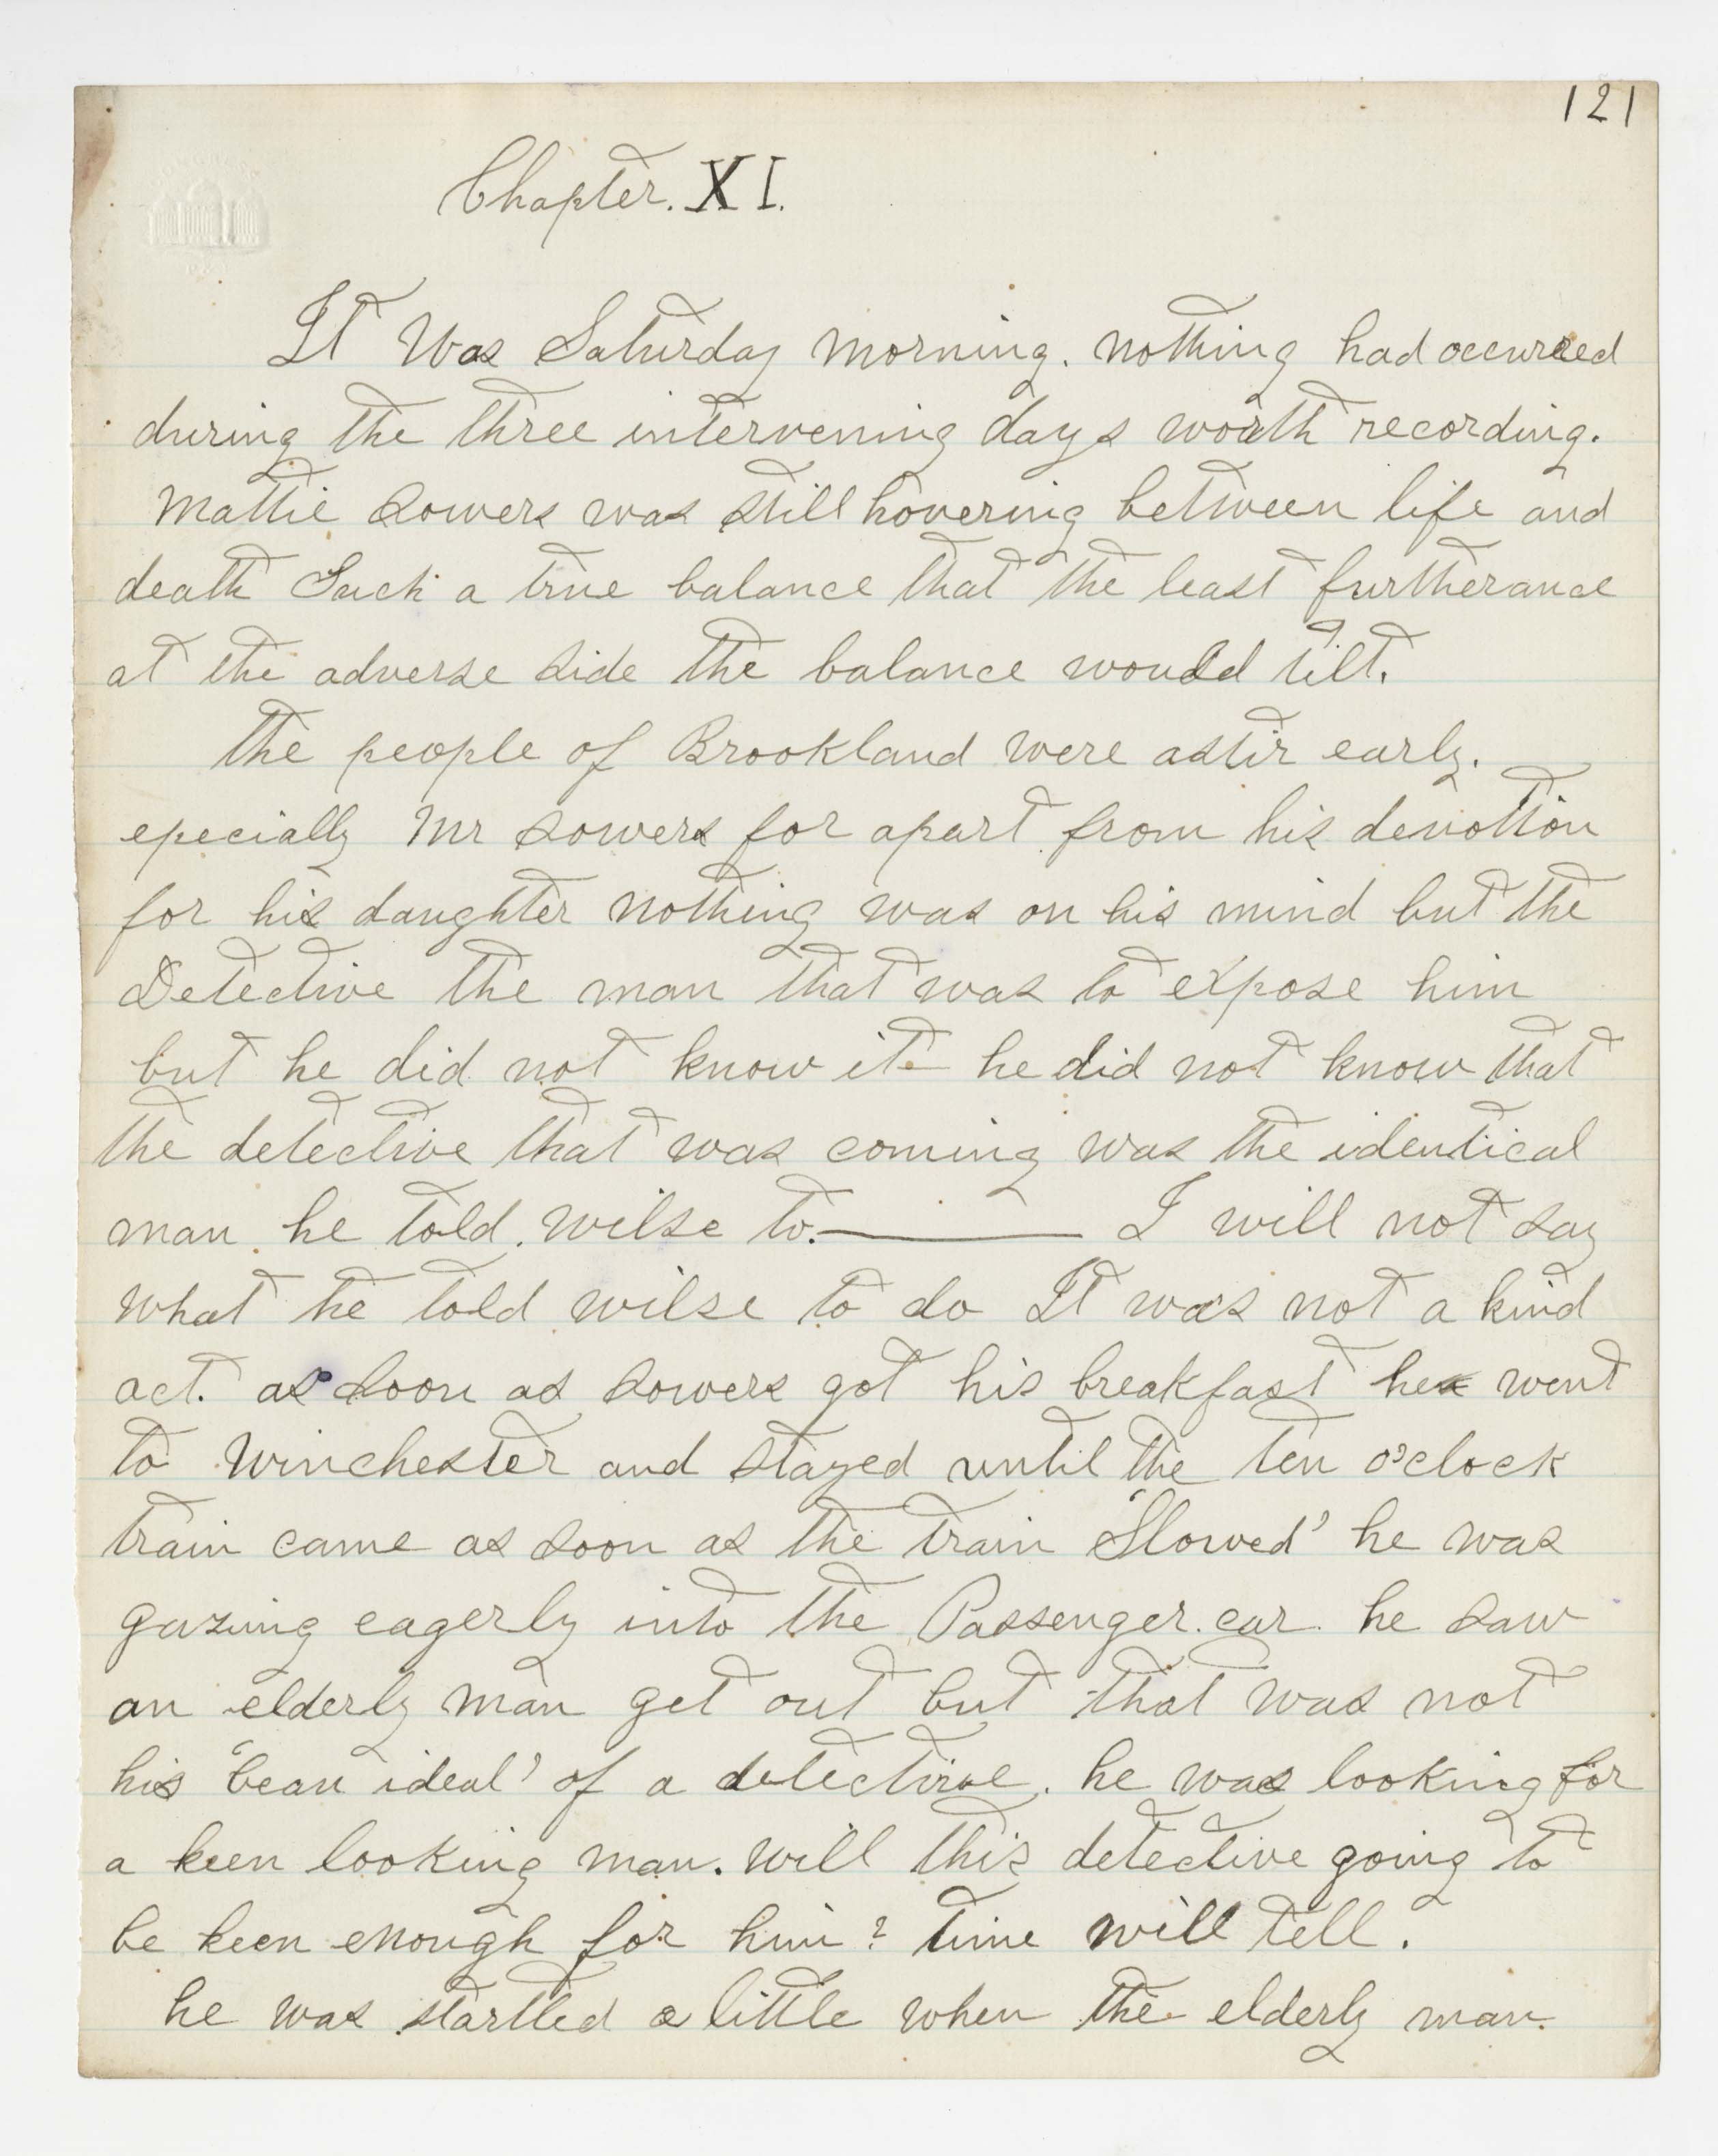 121
Chapter. XI.
It Was Saturday morning. nothing had occurred
during the three intervening days worth recording.
Mattie Sowers was still hovering between life and
death Such a true balance that the least furtherance
at the adverse side the balance would tilt.
The people of Brookland were astir early.
epecially Mr Sowers for apart from his devotion
for his daughter nothing was on his mind but the
Detective the man that was to expose him
but he did not know it he did not know that
the detective that was coming was the identical
man he told. wilse to.——— I will not say
what he told wilse to do It was not a kind
act. as soon as Sowers got his breakfast he went
to Winchester and stayed until the ten o'clock
train came as soon as the train 'Slowed' he was
gazing eagerly into the Passenger. car. he saw
an elderly man get out but that was not
his 'beau ideal' of a detective. he was looking for
a keen looking man. will this detective going to
be keen enough for him? time will tell.
he was startled a little when the elderly man.